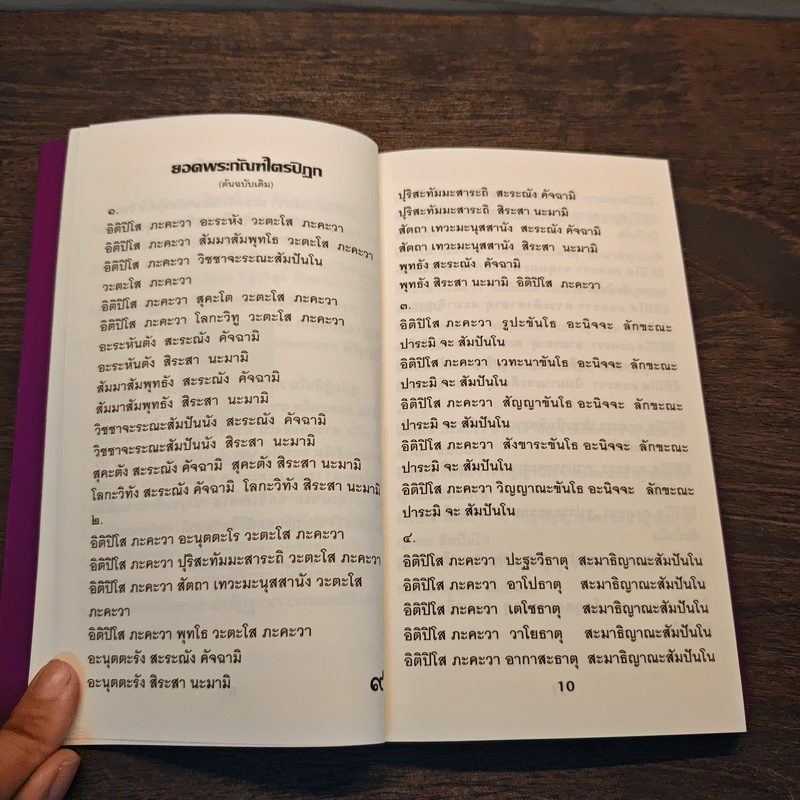 ยอดพระกัณฑ์ไตรปิฎก
(ต้นฉบับเดิม)
๑.
อิติปิโส ภะคะวา อะระหัง วะตะโส ภะคะวา
อิติปิโส ภะคะวา สัมมาสัมพุทโธ วะตะโส ภะคะวา
อิติปิโส ภะคะวา วิชชาจะระณะสัมปันโน
วะตะโส ภะคะวา
อิติปิโส ภะคะวา สุคะโต วะตะโส ภะคะวา
อิติปิโส ภะคะวา โลกะวิทู วะตะโส ภะคะวา
อะระหันตัง สะระณัง คัจฉามิ
อะระหันตัง สิระสา นะมามิ
สัมมาสัมพุทธัง สะระณัง คัจฉามิ
สัมมาสัมพุทธัง สิระสา นะมามิ
วิชชาจะระณะสัมปันนัง สะระณัง คัจฉามิ
วิชชาจะระณะสัมปันนัง สิระสา นะมามิ
สุคะตัง สะระณัง คัจฉามิ สุคะตัง สิระสา นะมามิ
โลกะวิทัง สะระณัง คัจฉามิ โลกะวิทัง สิระสา นะมามิ
๒.
อิติปิโส ภะคะวา อะนุตตะโร วะตะโส ภะคะวา
อิติปิโส ภะคะวา ปุริสะทัมมะสาระถิ วะตะโส ภะคะวา
อิติปิโส ภะคะวา สัตถา เทวะมะนุสสานัง วะตะโส
ภะคะวา
อิติปิโส ภะคะวา พุทโธ วะตะโส ภะคะวา
อะนุตตะรัง สะระณัง คัจฉามิ
อะนุตตะรัง สิระสา นะมามิ
๙
ปุริสะทัมมะสาระถิ สะระณัง คัจฉามิ
ปุริสะทัมมะสาระถิ สิระสา นะมามิ
สัตถา เทวะมะนุสสานัง สะระณัง คัจฉามิ
สัตถา เทวะมะนุสสานัง สิระสา นะมามิ
พุทธัง สะระณัง คัจฉามิ
พุทธัง สิระสา นะมามิ อิติปิโส ภะคะวา
๓.
อิติปิโส ภะคะวา รูปะขันโธ อะนิจจะ ลักขะณะ
ปาระมิ จะ สัมปันโน
อิติปิโส ภะคะวา เวทะนาขันโธ อะนิจจะ ลักขะณะ
ปาระมิ จะ สัมปันโน
อิติปิโส ภะคะวา สัญญาขันโธ อะนิจจะ ลักขะณะ
ปาระมิ จะ สัมปันโน
อิติปิโส ภะคะวา สังขาระขันโธ อะนิจจะ ลักขะณะ
ปาระมิ จะ สัมปันโน
อิติปิโส ภะคะวา วิญญาณะขันโธ อะนิจจะ ลักขะณะ
ปาระมิ จะ สัมปันโน
๔.
อิติปิโส ภะคะวา ปะฐะวีธาตุ สะมาธิญาณะสัมปันโน
อิติปิโส ภะคะวา อาโปธาตุ สะมาธิญาณะสัมปันโน
อิติปิโส ภะคะวา เตโชธาตุ สะมาธิญาณะสัมปันโน
อิติปิโส ภะคะวา วาโยธาตุ สะมาธิญาณะสัมปันโน
อิติปิโส ภะคะวา อากาสะธาตุ สะมาธิญาณะสัมปันโน
10